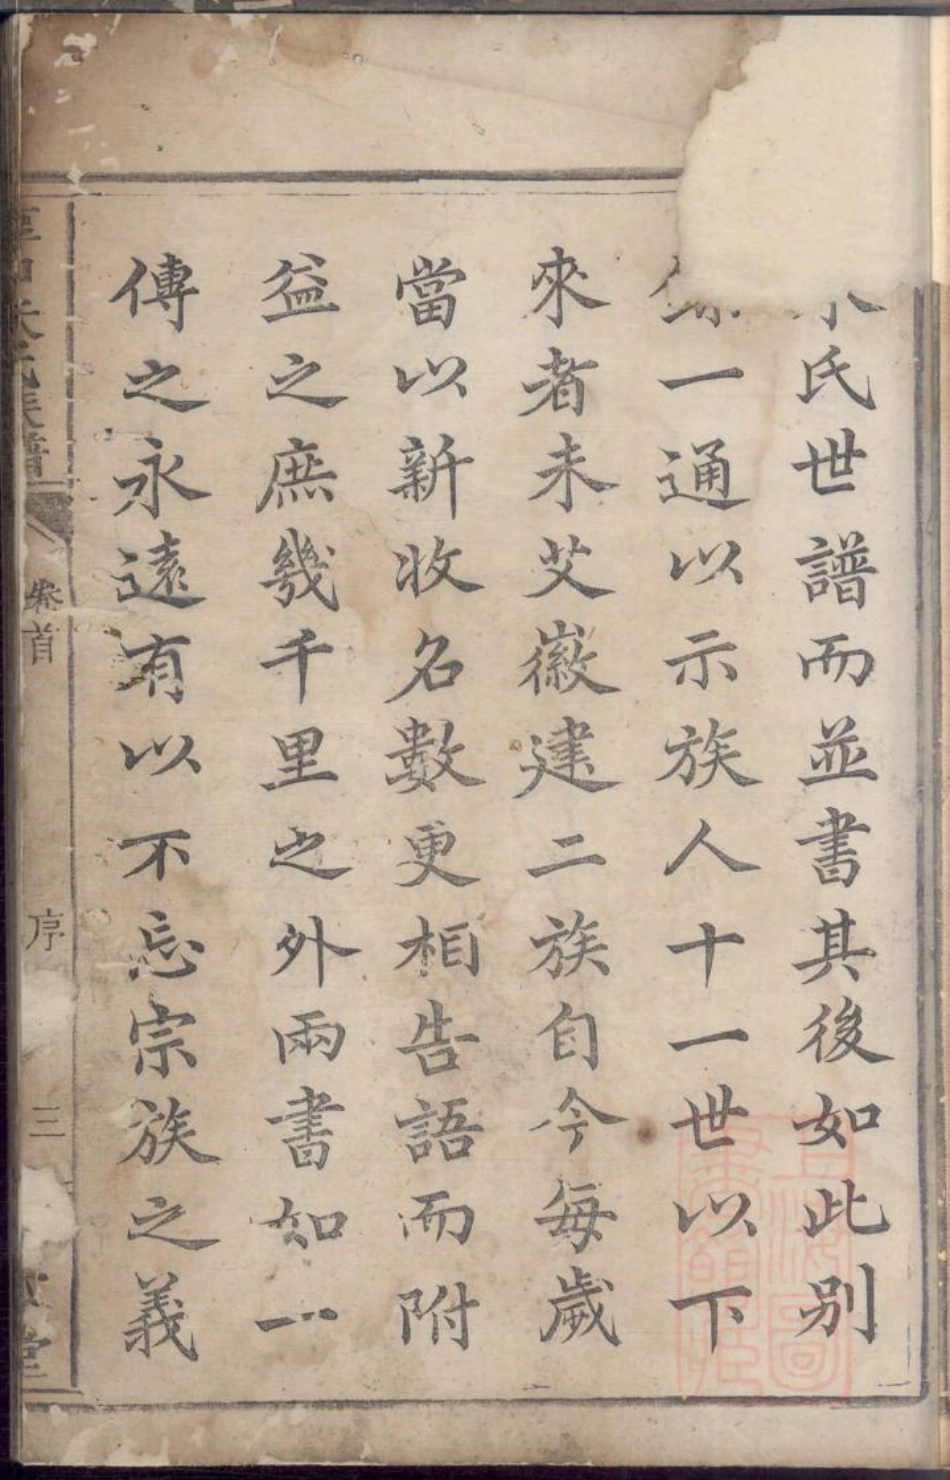 氏世譜而並書其後如此别
一通以示族人十一世以下
來者未艾徽建二族自今每歲
當以新收名數更相告語而附
益之庶幾千里之外兩書如一
傳之永遠有以不忘宗族之義
族譜
卷首
序
三
堂
上海圖書館藏